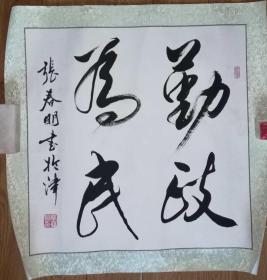 勤政
為民
張春明書於津